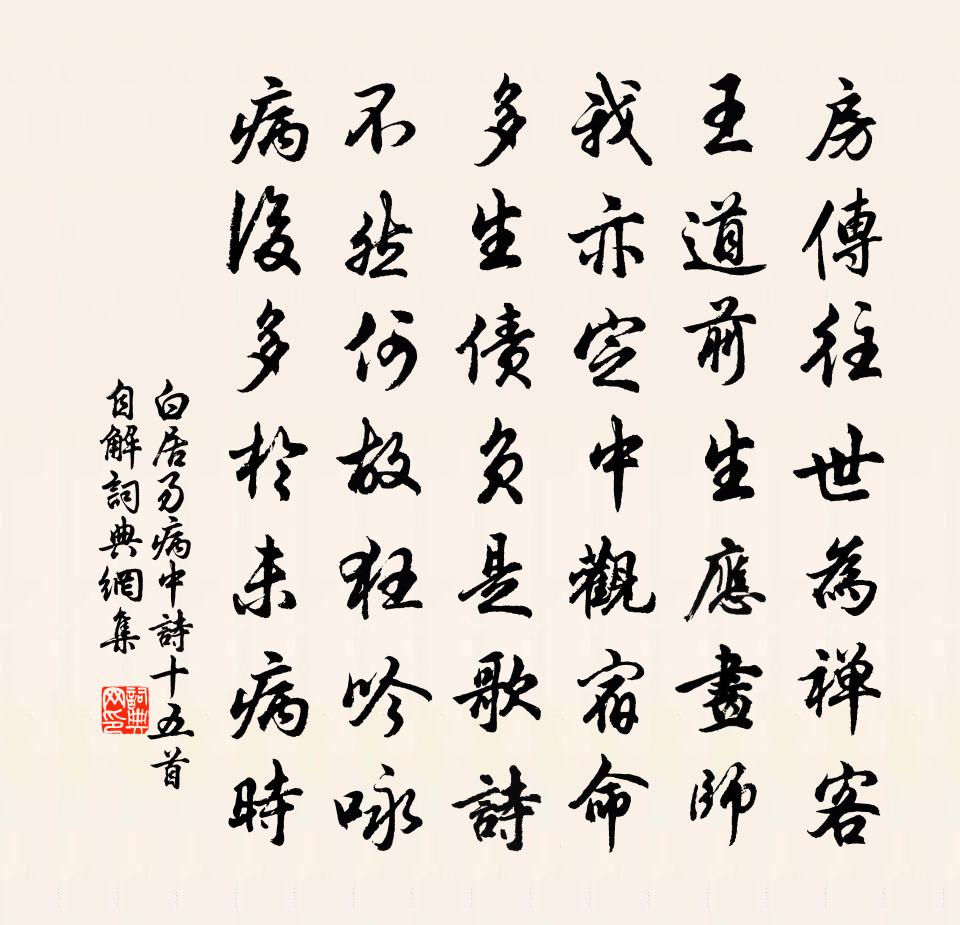 房傳往世為禅客
王道前生應畫師
我亦定中觀宿命
多生債負是歌詩
不然何故狂吟咏
病後多於未病時
白居易病中詩十五首
自解詞典網集
詞典网印